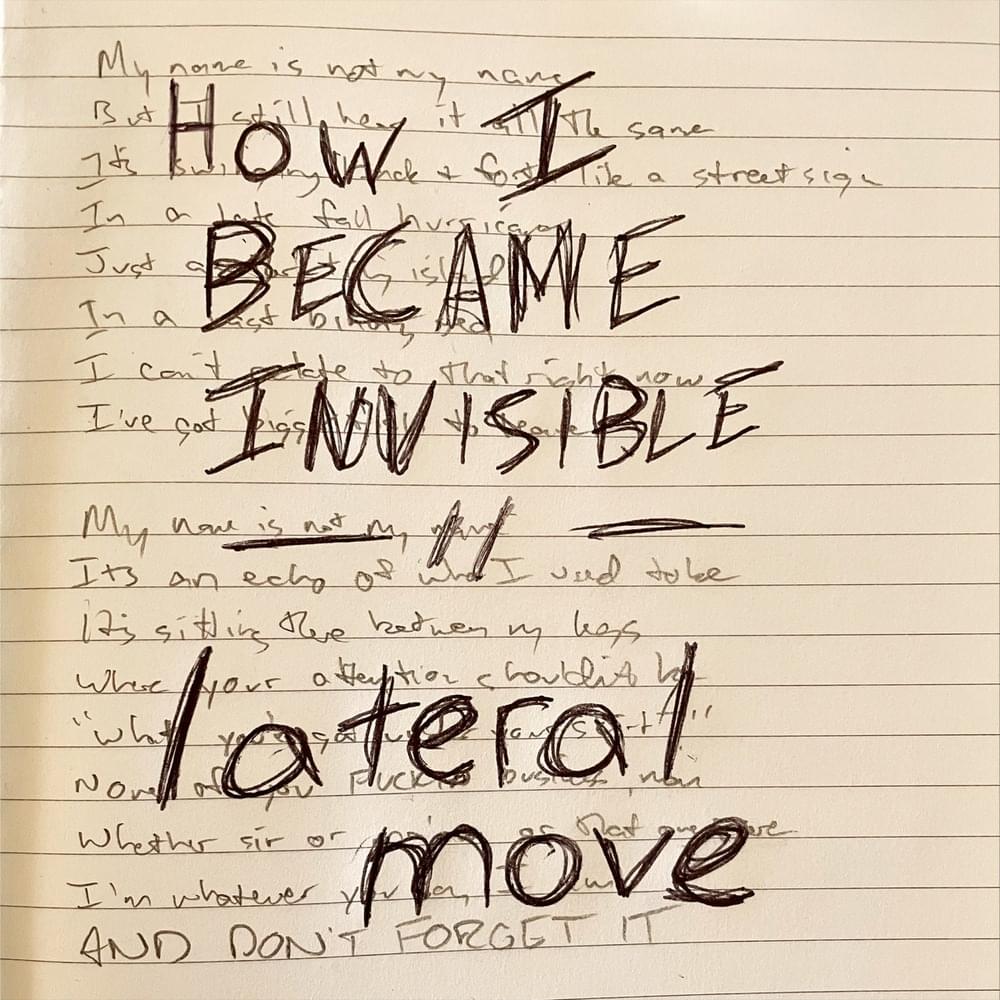 HOW I
BECAME
INVISIBLE
— // —
lateral
move
My name is not my name
But I still hear it all the same
It's swinging back + forth like a street sign
In a late fall hurricane
Just a island
In a vast binary sea
I can't relate to that right now
I've got to
My name is not my name
Its an echo of who I used to be
It's sitting there between my legs
Where your attention shouldn't be
"What you've got
None of you FUCKIN business, man
Whether sir or or that
I'm whatever you say, I am
AND DON'T FORGET IT